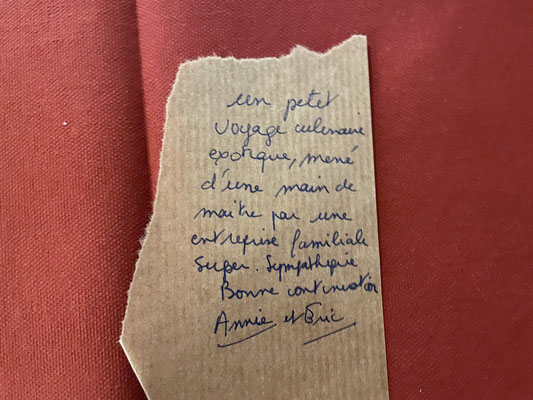 un petit
voyage culinaire
exotique, mené
d'une main de
maître par une
entreprise familiale
super. sympathique
Bonne continuation
Annie et Eric